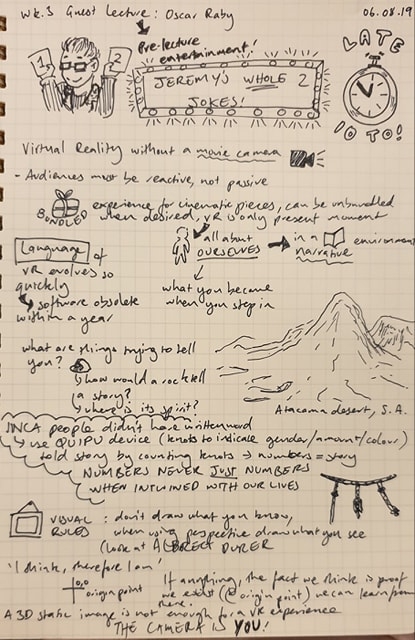 Wk.3 Guest Lecture: Oscar Raby
06.08.19
Pre-lecture
entertainment!
1 2
JEREMY'S WHOLE 2
JOKES!
LATE
10 TO!
Virtual Reality without a movie camera
- Audiences must be reactive, not passive
BUNDLED experience for cinematic pieces, can be unbundled
when desired, VR is only present moment
Language of
VR evolves so
quickly
↳ software obsolete
within a year
all about
OURSELVES
→ in a environment
narrative
what you become
when you step in
what are things trying to tell
you?
↳ how would a rock tell
a story?
↳ where is its spirit?
Atacama desert, S.A.
INCA people didn't have written word
↳ use QUIPU device (knots to indicate gender/amount/colour)
told story by counting knots → numbers = story
NUMBERS NEVER JUST NUMBERS
WHEN INTWINED WITH OUR LIVES
VISUAL
RULES
: don't draw what you know,
when using perspective draw what you see
(look at ALBRECT DURER
'I think, therefore I am'
0,0
origin point
If anything, the fact we think is proof
we exist (origin point) we can learn from
there.
A 3D static image is not enough for a VR experience
THE CAMERA IS YOU!